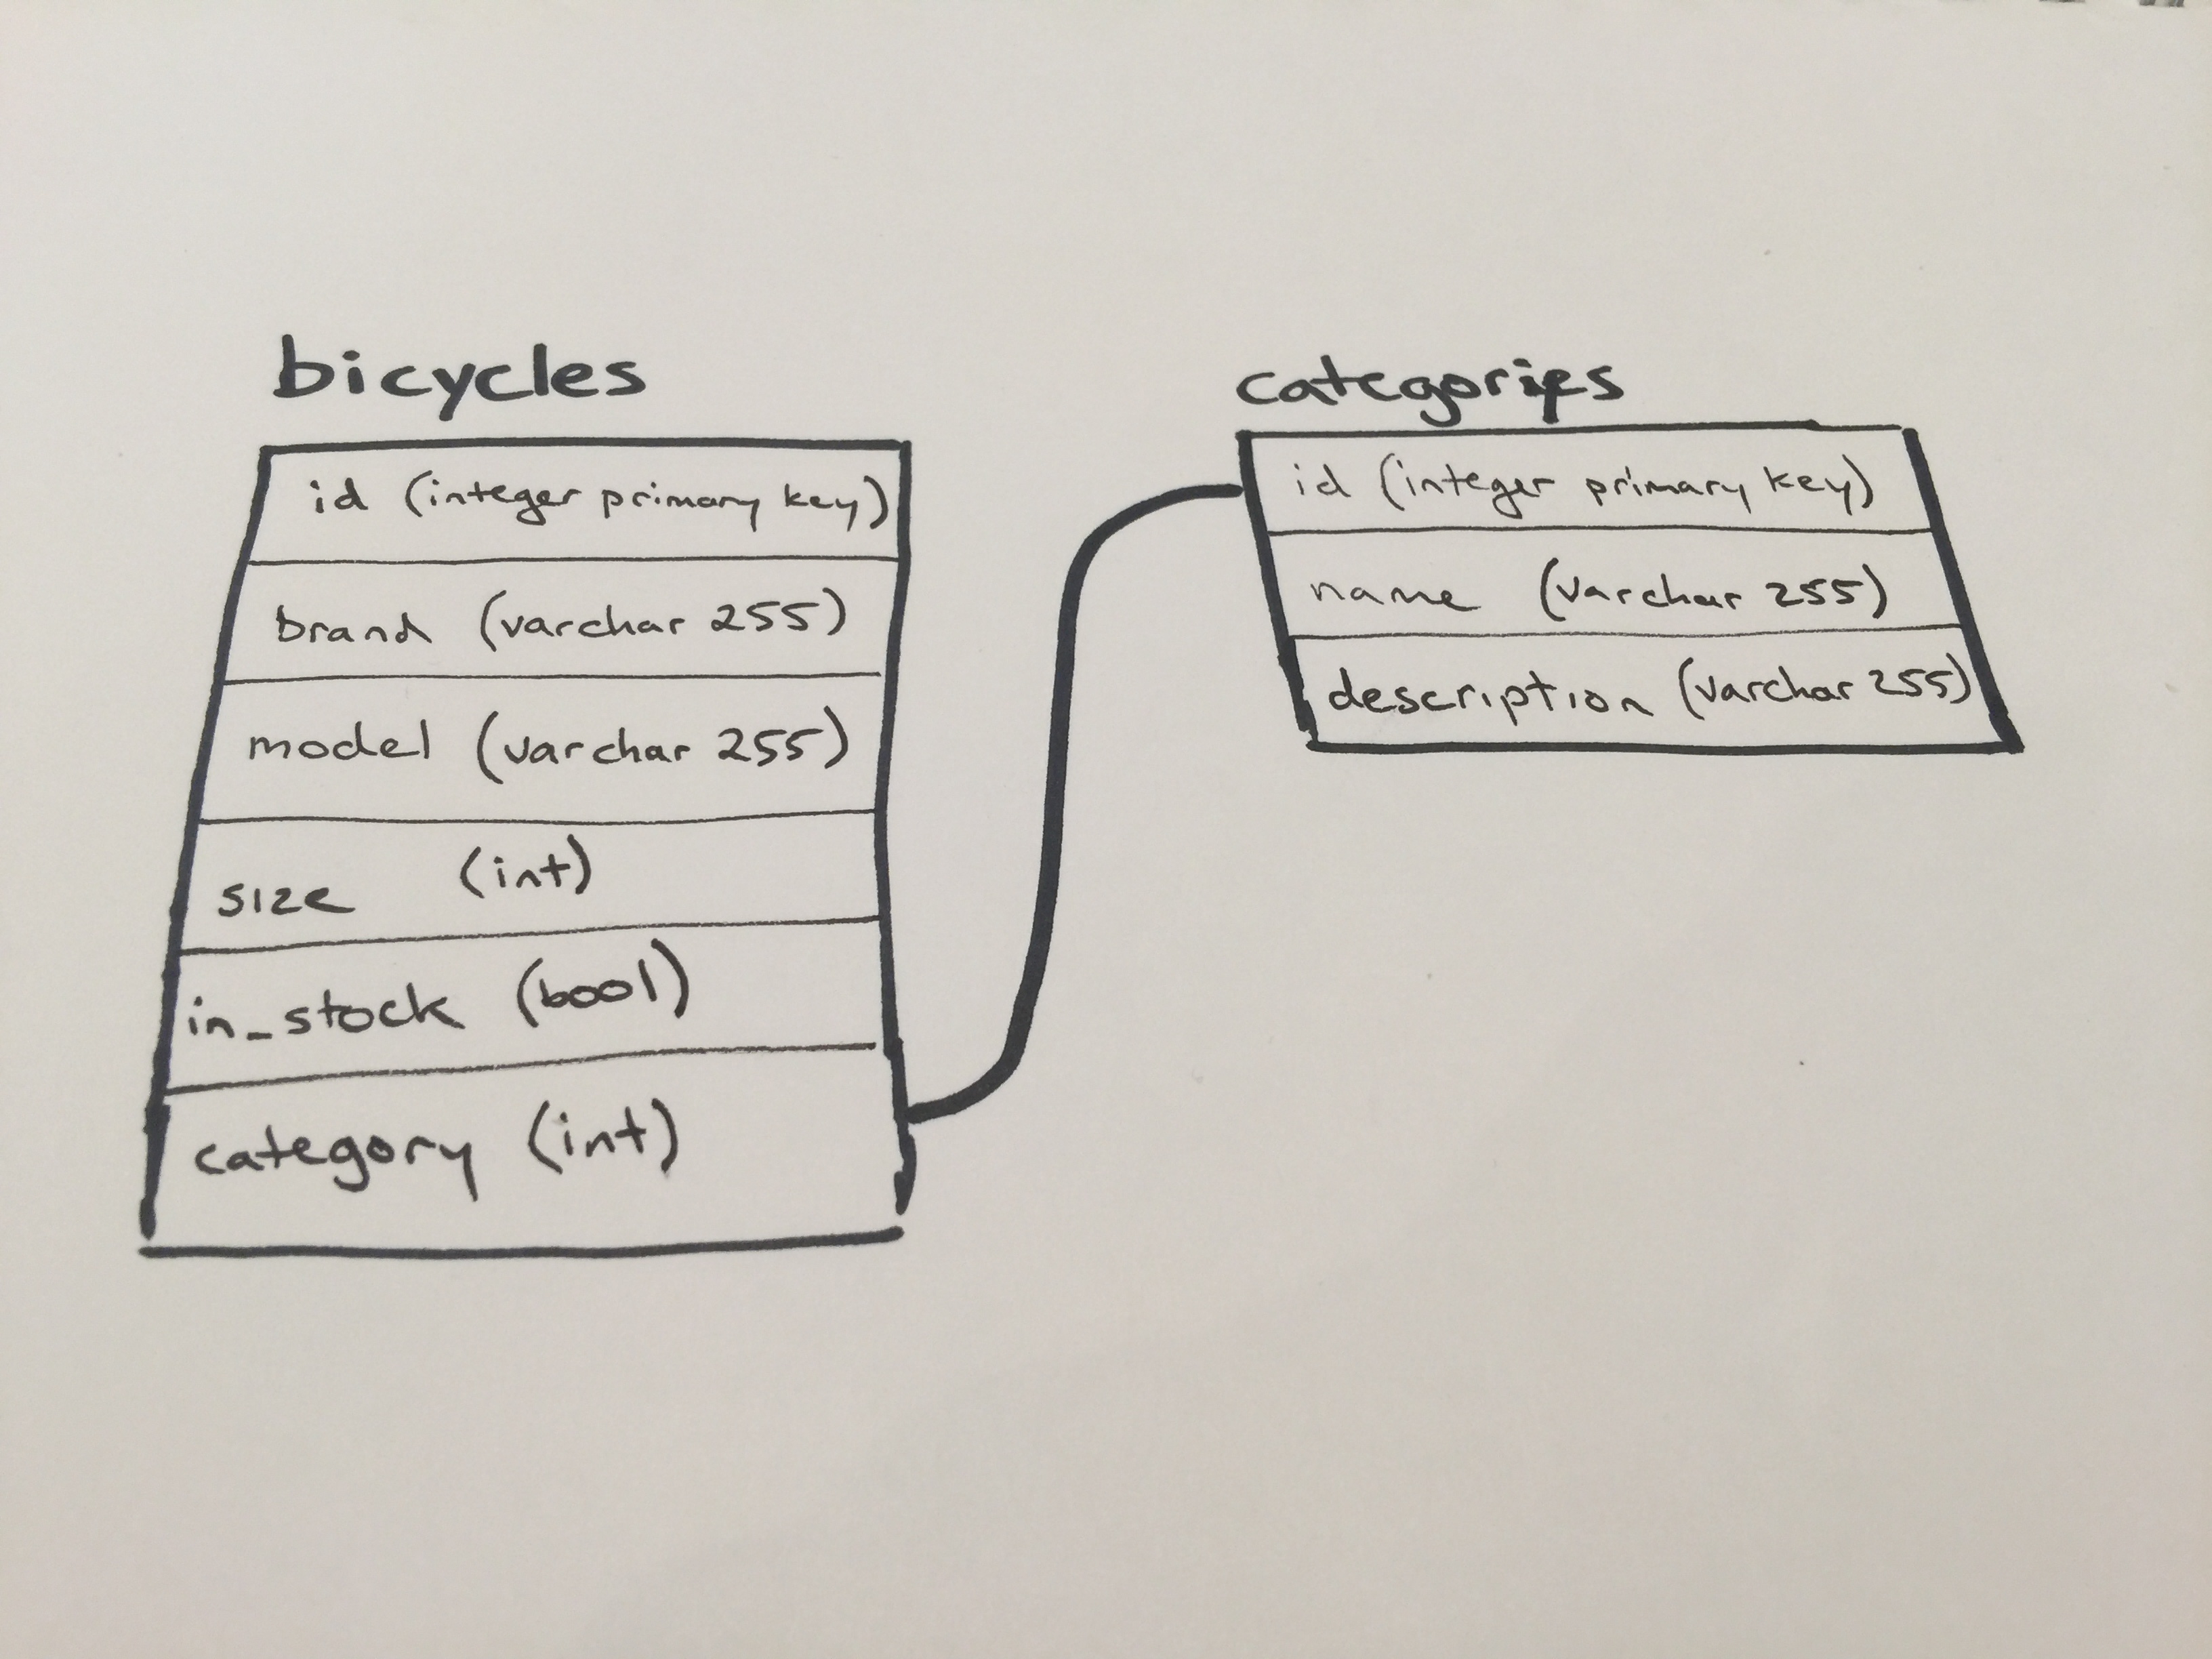 bicycles
id (integer primary key)
brand (varchar 255)
model (varchar 255)
size (int)
in_stock (bool)
category (int)
categories
id (integer primary key)
name (varchar 255)
description (varchar 255)